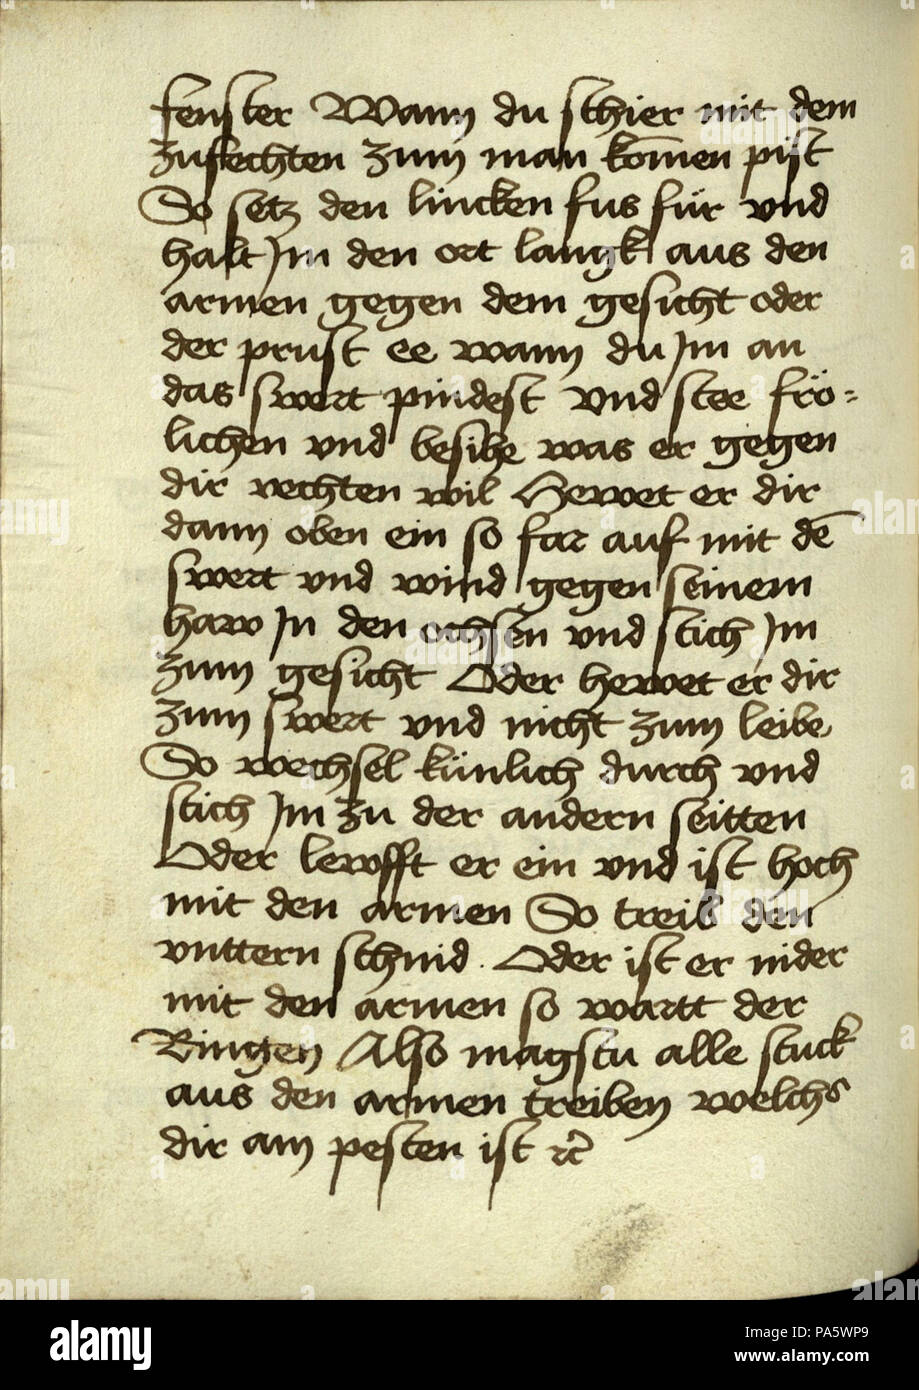 fenster Wann du schier mit dem
zufechten zum man kom̄en pist
So setz den lincken fus für vnd
halt Jm den ort langk aus den
armen gegen dem gesicht oder
der prust ee wann du Jm an
das swert pindest vnd stee frö=
lichen vnd besihe was er gegen
dir vechten wil Hewet er dir
dann oben ein so far auf mit dē
swert vnd wind gegen seinem
haw Jn den ochsen vnd stich Jm
zum gesicht Oder hewet er dir
zum swert vnd nicht zum leibe
So wechsel künlich durch vnd
stich Jm zu der andern seitten
Oder lewfft er ein vnd ist hoch
mit den armen So treib den
vnttern schnid. Oder ist er nider
mit den armen so wartt der
Ringen Also magstu alle stuck
aus den armen treiben welchs
dir am pesten ist
alamy
Image ID: PA5WP9
www.alamy.com